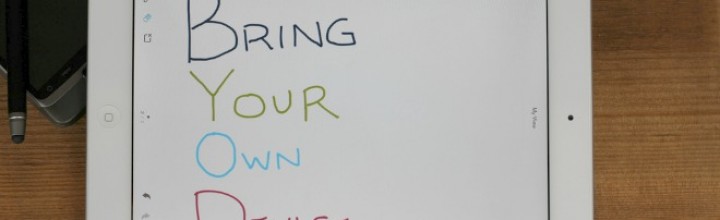 BRING
YOUR
OWN